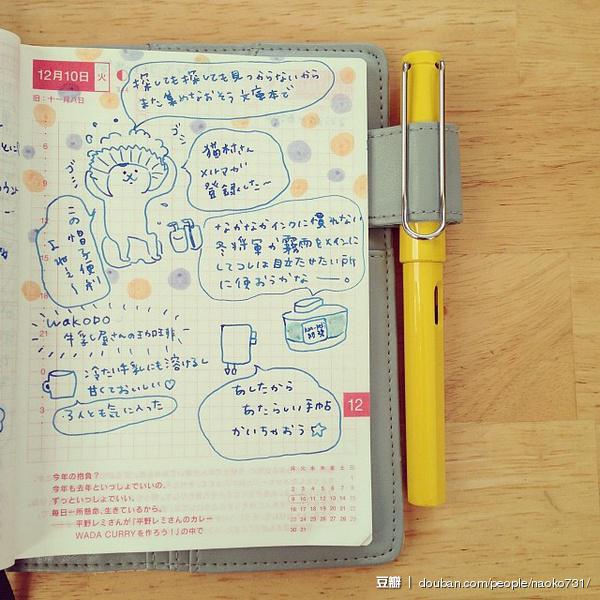 12月10日 火
旧:十一月八日
探しても探しても見つからないから
また集めなおそう 文庫本で
ゴシ
ゴシ
猫村さん
メルマガ
登録した〜
この帽子便利
よねぇ〜
なかなかインクに慣れない
冬将軍が霧雨をメインに
してコレは目立たせたい所
に使おうかなー。
wakodo
牛乳屋さんの珈琲
冷たい牛乳にも溶けるし
甘くておいしい♡
3人とも気に入った
あしたから
あたらしい手帖
かいちゃおう☆
12
今年の抱負?
今年も去年といっしょでいいの。
ずっといっしょでいい。
毎日一所懸命、生きているから。
──平野レミさんが『平野レミさんのカレー
WADA CURRYを作ろう!』の中で
月 火 水 木 金 土 日
1
2 3 4 5 6 7 8
9 10 11 12 13 14 15
16 17 18 19 20 21 22
23 24 25 26 27 28 29
30 31
豆瓣 | douban.com/people/naoko731/